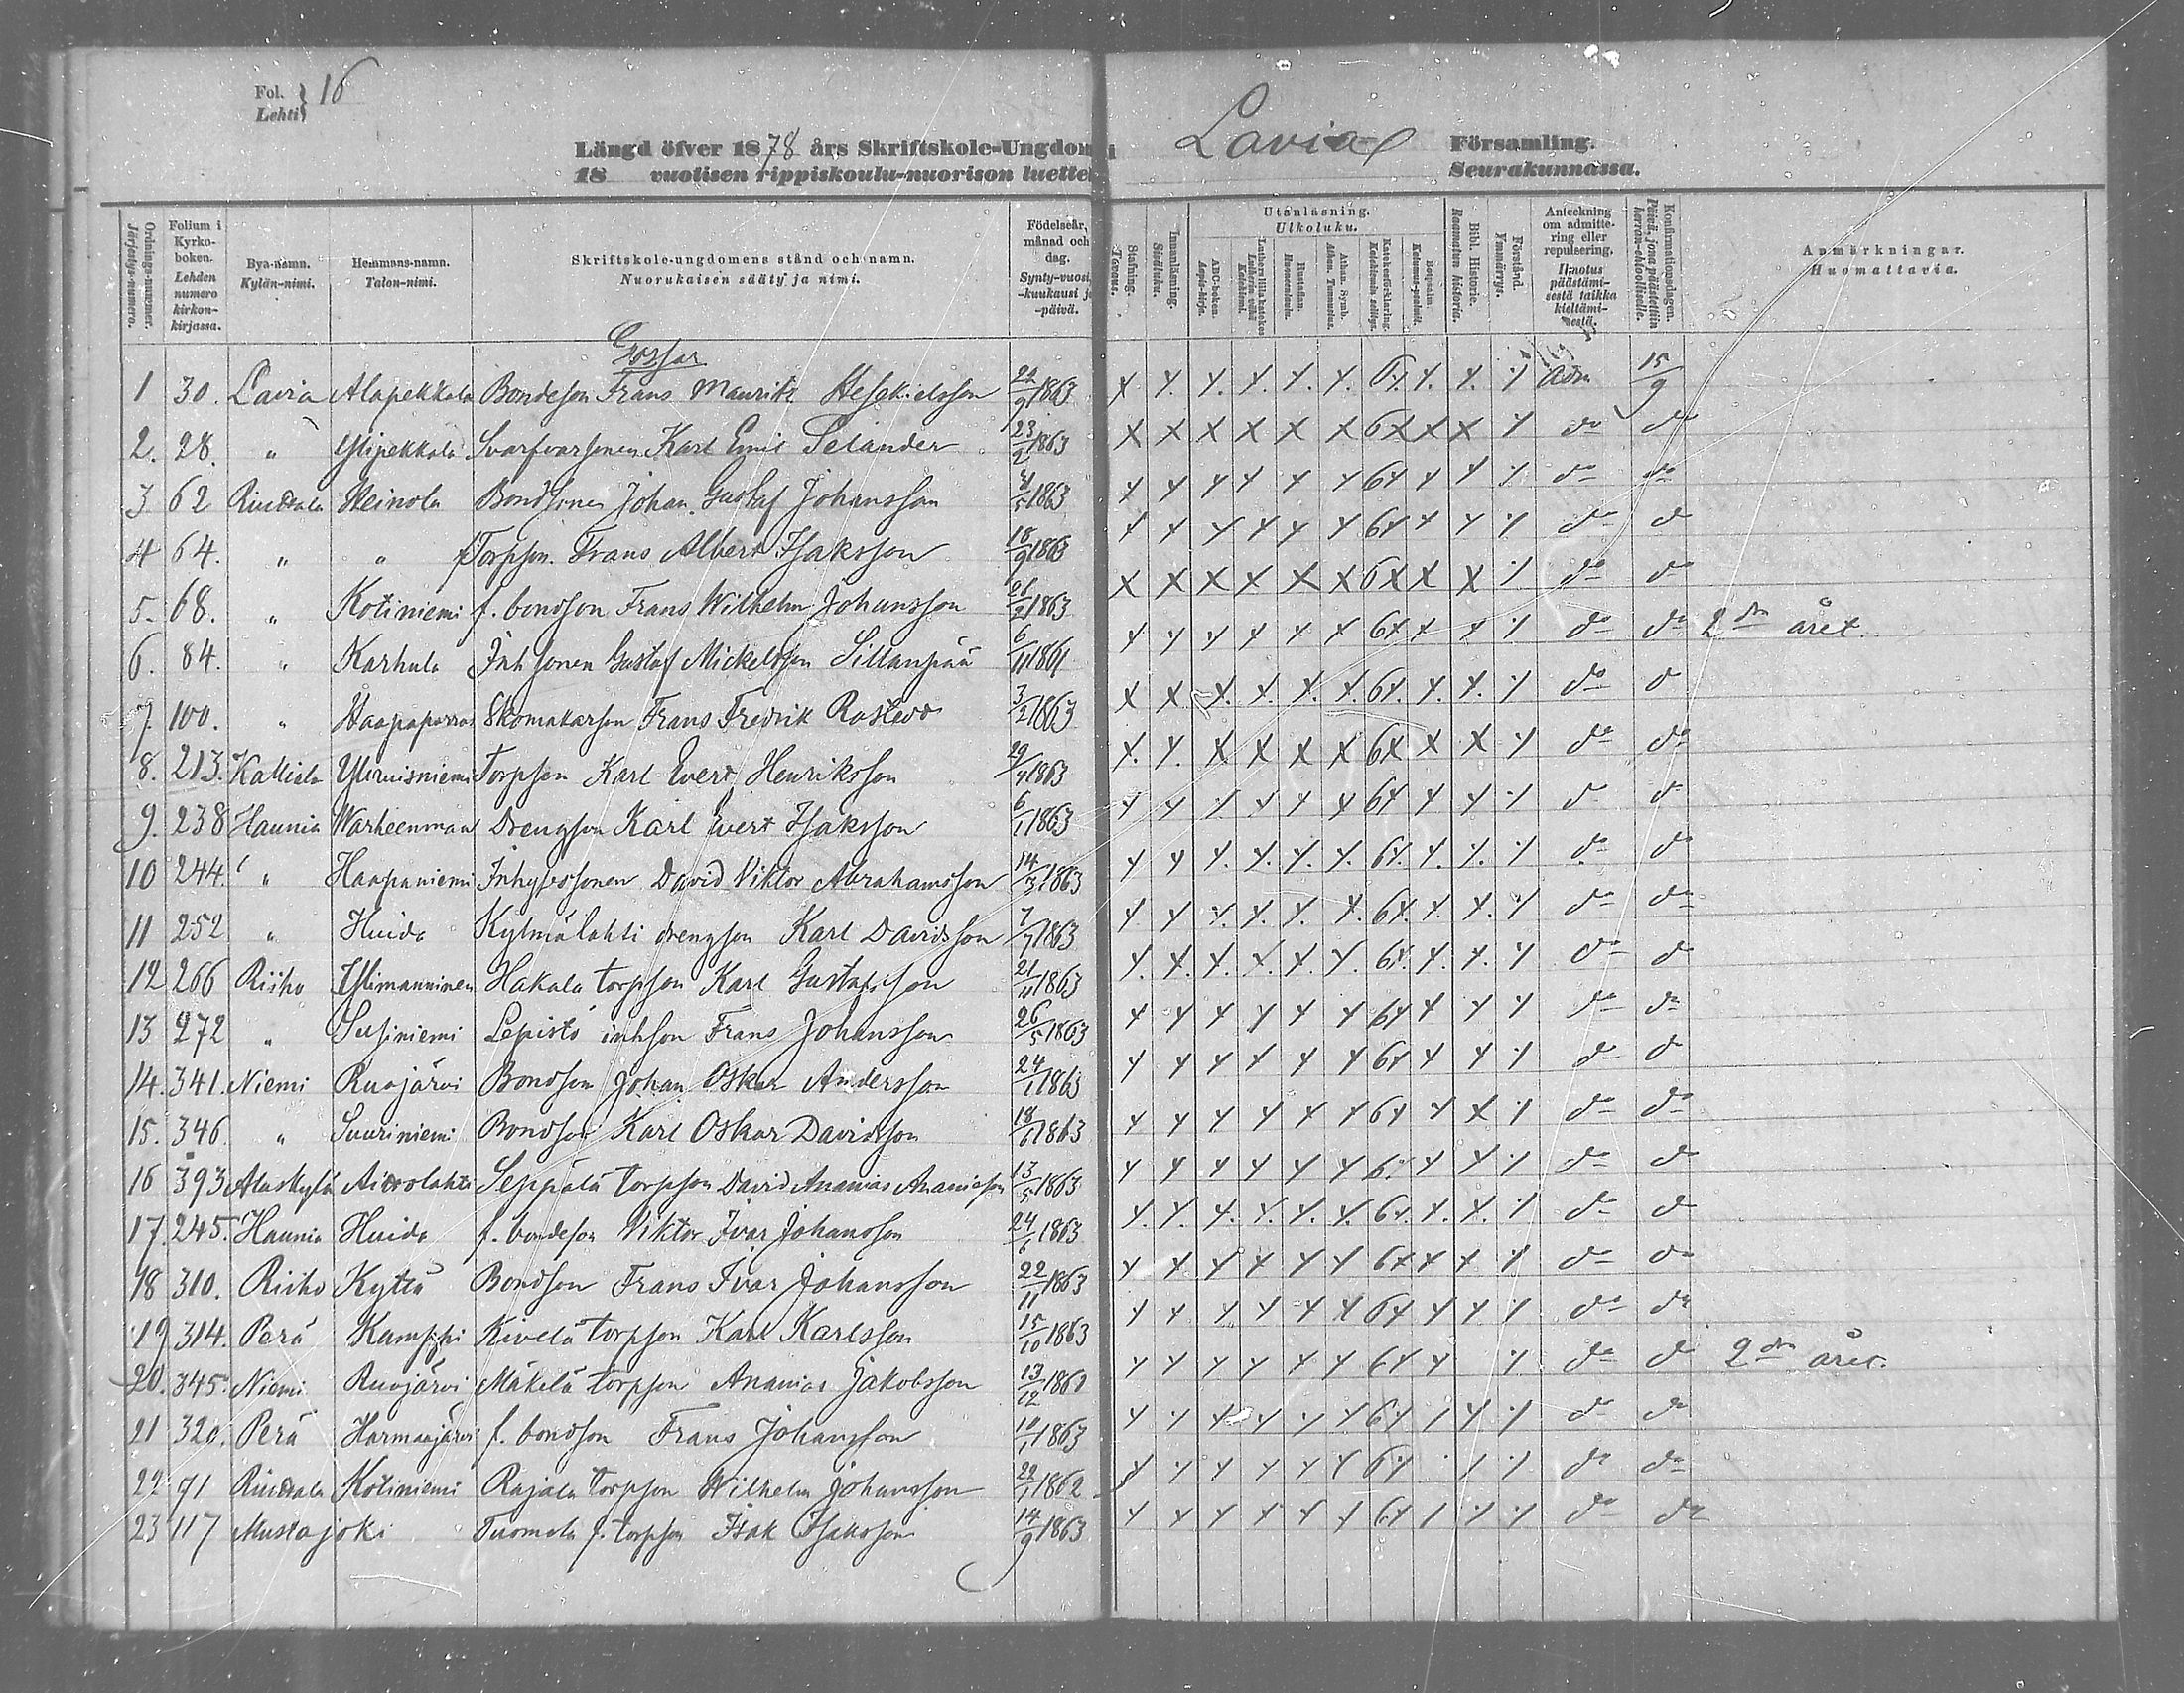 Fol. Lehti } 16
Längd öfver 1878 års Skriftskole-Ungdom i Lavia Församling.
18 vuotisen rippiskoulu-nuorison luettelo Seurakunnassa.
Ordnings-nummer. Järjestys-numero. Folium i Kyrko-boken. Lehden numero kirkon-kirjassa. Bya-namn. Kylän-nimi. Hemmans-namn. Talon-nimi. Skriftskole-ungdomens stånd och namn. Nuorukaisen sääty ja nimi. Födelseår, månad och dag. Synty-vuosi, -kuukausi ja -päivä. Stafning. Tavaus. Innanläsning. Sisäluku. Utanläsning. Ulkoluku. ABC-boken. Aapis-kirja. Luthers lilla katekes Lutherin vähä Katekismi. Hustaflan. Huoneentaulu. Athan. Symb. Athan. Tunnustus. Katekesförklaring. Katekismin selitys. Botpsalm. Katumus-psalmit. Bibl. Historie. Raamatun historia. Förstånd. Ymmärrys. Anteckning om admitte-ring eller repulsering. Ilmotus päästämi-sestä taikka kieltämi-sestä. Konfirmationsdagen. Päivä, jona päästettiin herran-ehtoolliselle. Anmärkningar. Huomattavia.
Gossar
1 30. Lavia Alapekkala Bondeson Frans Maurits Heskielsson 22/9 1863 x y. y. y. y. y. 6y y. y. y Adm 15/9
2. 28. " Ylipekkala Svarfvarsonen Karl Emil Selander 23/2 1863 x x x x x x 6x x x y do do
3 62 Riuttala Heinola Bondsonen Johan Gustaf Johansson 4/5 1863 y y y y y y 6y y y y do do
4 64. " " f Torpson. Frans Albert Isaksson 18/9 1863 y y y y y y 6y y y y do do
5. 68. " Kotiniemi f. bondson Frans Wilhelm Johansson 26/2 1863 x x x x x x 6x x x y do do
6. 84. " Karhula Inhsonen Gustaf Mickelsson Sillanpää 6/11 1861 y y y y y y 6y y y y do do 2dra året
7. 100. " Haapaporras Skomakarson Frans Fredrik Rostedt 3/2 1863 x x x. y. y. y. 6y. y. y. y do do
8. 213. Kalliala Yliruisniemi Torpson Karl Evert Henriksson 29/7 1863 y. y. x x x x 6x x x y do do
9. 238 Haunia Warheenmaa Drengson Karl Evert Isaksson 6/1 1863 y y y y y y 6y y y y do do
10 244. " Haapaniemi Inhysessonen David Viktor Abrahamsson 14/3 1863 y y y. y. y. y. 6y. y. y. y do do
11 252 " Huida Kylmälahti drengson Karl Davidsson 7/7 1863 y. y y. y. y. y. 6y. y. y. y do do
12 266 Riiho Ylimanninen Hakala torpson Karl Gustafsson 21/11 1863 y. y. y. y. y. y. 6y. y. y. y do do
13 272 " Susiniemi Lepistö inhson Frans Johansson 26/5 1863 y y y y y y 6y y y y do do
14. 341. Niemi Ruojärvi Bondson Johan Oskar Andersson 24/1 1863 y y y y y y 6y y y y do do
15. 346. " Suuriniemi Bondson Karl Oskar Davidsson 18/6 1863 y y y y y y 6y y x y do do
16 393 Alaskylä Airolahti Seppälä torpson David Ananias Ananiasson 13/5 1863 y y y y y y 6y y y y do do
17. 245. Haunia Huida f. bondeson Viktor Ivar Johansson 24/6 1863 y. y. y. y. y. y. 6y. y. y. y do do
18 310. Riiho Kyttä Bondson Frans Ivar Johansson 22/11 1863 y y y y y y 6y y y y do do
19 314. Perä Kamppi Kivelä torpson Karl Karlsson 15/10 1863 y y y y y y 6y y y y do do
20. 345. Niemi Ruojärvi Mäkelä torpson Ananias Jakobsson 13/12 1860 y y y y y y 6y y y do do 2dra året.
21 320. Perä Harmaajärvi f. bondson Frans Johansson 10/1 1863 y y y y y y 6y y y y do do
22 71 Riuttala Kotiniemi Rajala torpson Wilhelm Johansson 22/1 1862 y y y y y y 6y y y do do
23 117 Mustajoki Tuomola f. torpson Isak Isaksson 14/9 1863 y y y y y y 6y y y y do do